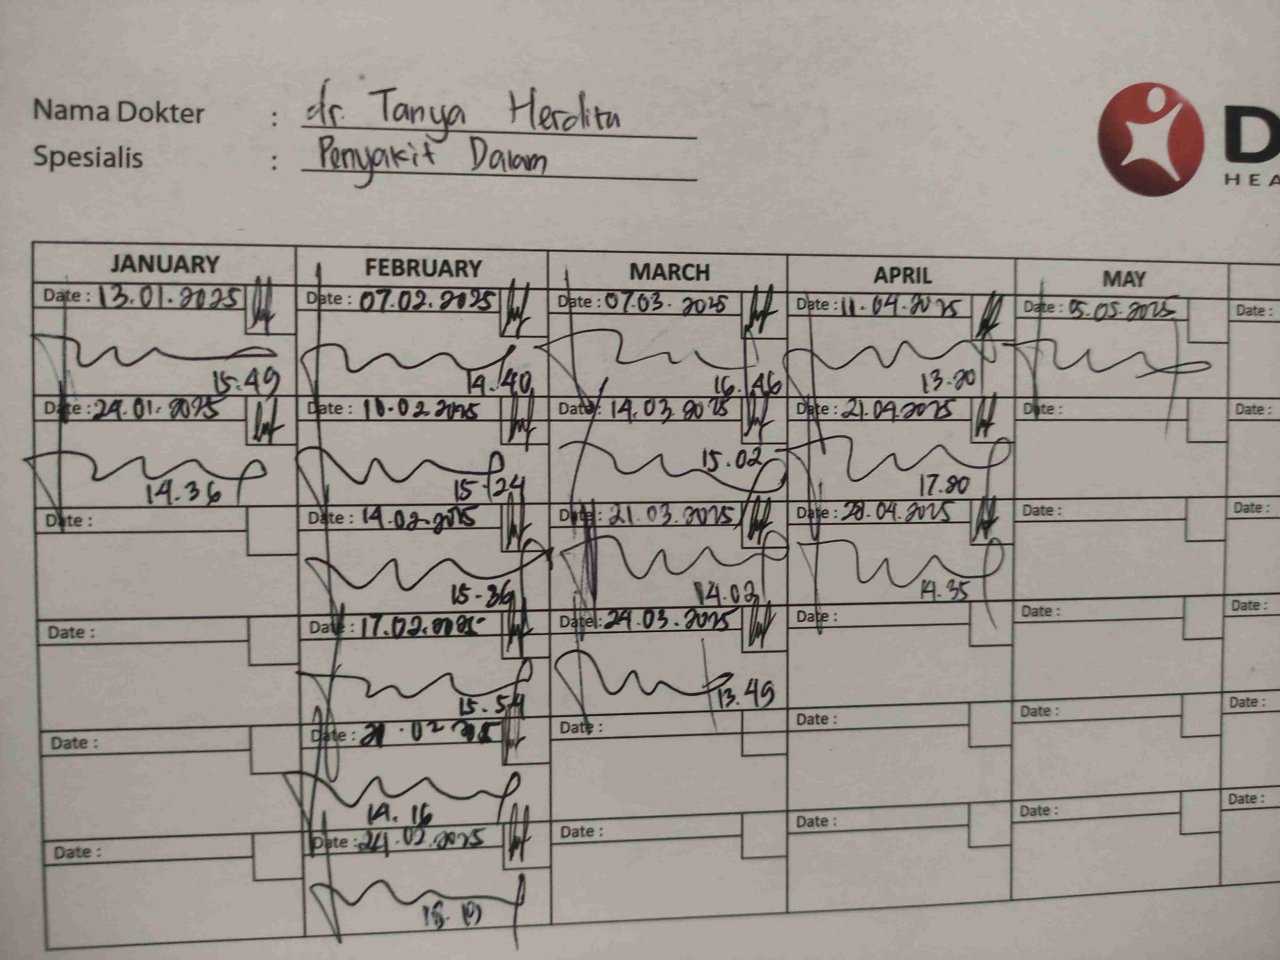 Nama Dokter : dr. Tanya Herdita
Spesialis : Penyakit Dalam
D
HEA
JANUARY FEBRUARY MARCH APRIL MAY
Date : 13.01.2025 Date : 07.02.2025 Date : 07.03.2025 Date : 11.04.2025 Date : 05.05.2025 Date :
15.49 14.40 16.46 13.20
Date : 24.01.2025 Date : 10.02.2025 Date : 14.03.2025 Date : 21.04.2025 Date : Date :
14.36 15.24 15.02 17.20
Date : Date : 14.02.2025 Date : 21.03.2025 Date : 28.04.2025 Date : Date :
15.36 14.03 14.35
Date : Date : 17.02.2025 Date : 24.03.2025 Date : Date : Date :
15.54 13.49
Date : Date : 21.02.2025 Date : Date : Date : Date :
14.16
Date : Date : 24.02.2025 Date : Date : Date : Date :